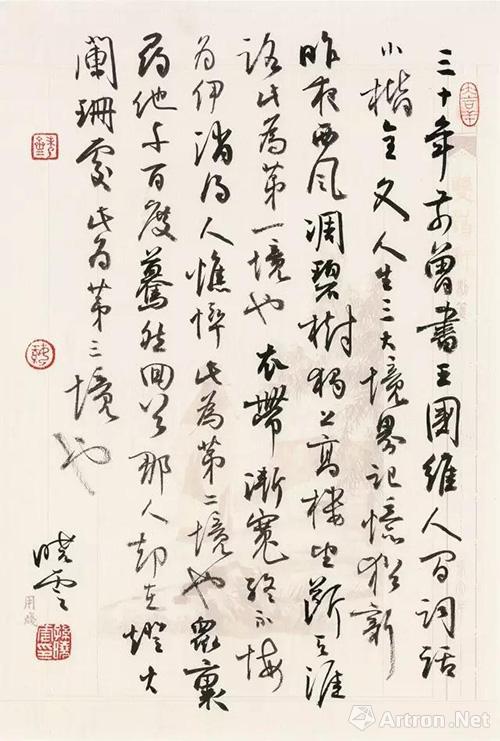 三十年前曾書王國維人間詞話
小楷全文人生三大境界記憶猶新
昨夜西風凋碧樹獨上高樓望斷天涯
路此為第一境也衣帶漸寬終不悔
為伊消得人憔悴此為第二境也眾裏
尋他千百度驀然回首那人却在燈火
闌珊處此為第三境也
曉雲
Artron.Net